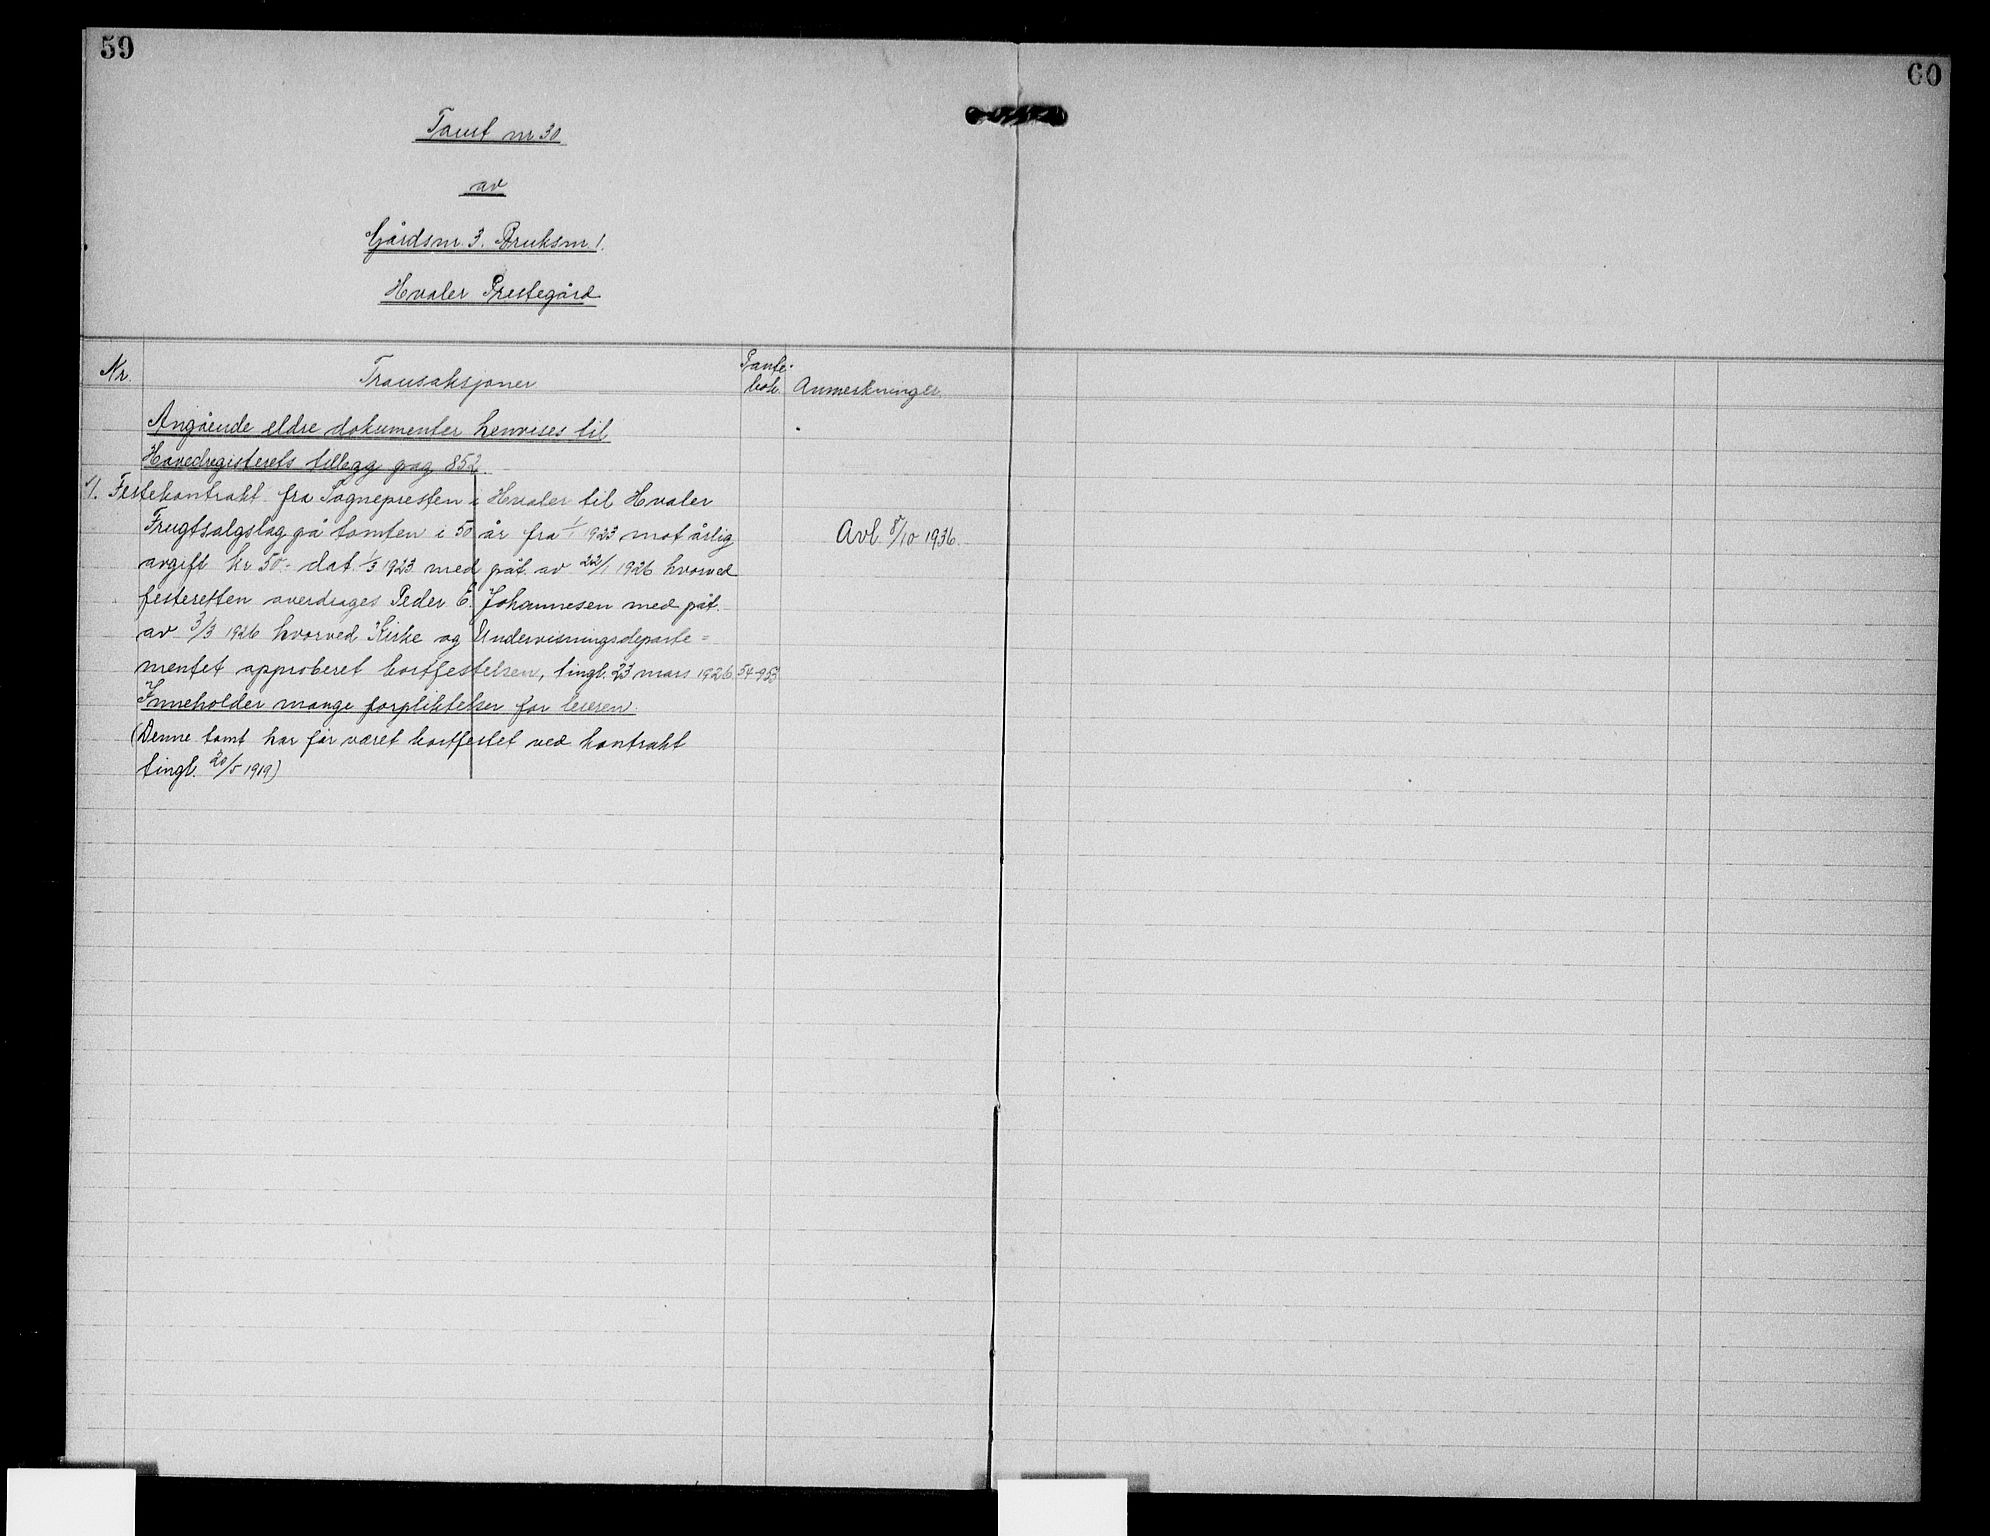 59
60
Tomt nr 30
av
Gårdsnr. 3. Bruksnr. 1.
Hvaler Prestegård
Nr. Transaksjoner Pante-bok. Anmerkninger.
Angående eldre dokumenter henvises til
Hovedregisterets tillegg pag 852.
1. Festekontrakt fra Sognepresten i Hvaler til Hvaler
Frugtsalgslag på tomten i 50 år fra 1/1 1923 mot årlig
Avl 8/10 1936.
avgift kr 50.- dat. 1/3 1923 med påt. av 22/1 1926 hvorved
festeretten overdrages Peder E. Johannesen med påt.
av 3/3 1926 hvorved Kirke og Undervisningsdeparte=
mentet approberet bortfestelsen, tingl. 23 mars 1926. 54-953
Inneholder mange forpliktelser for leieren.
(Denne tomt har før været bortfestet ved kontrakt
tingl. 20/5 1919)